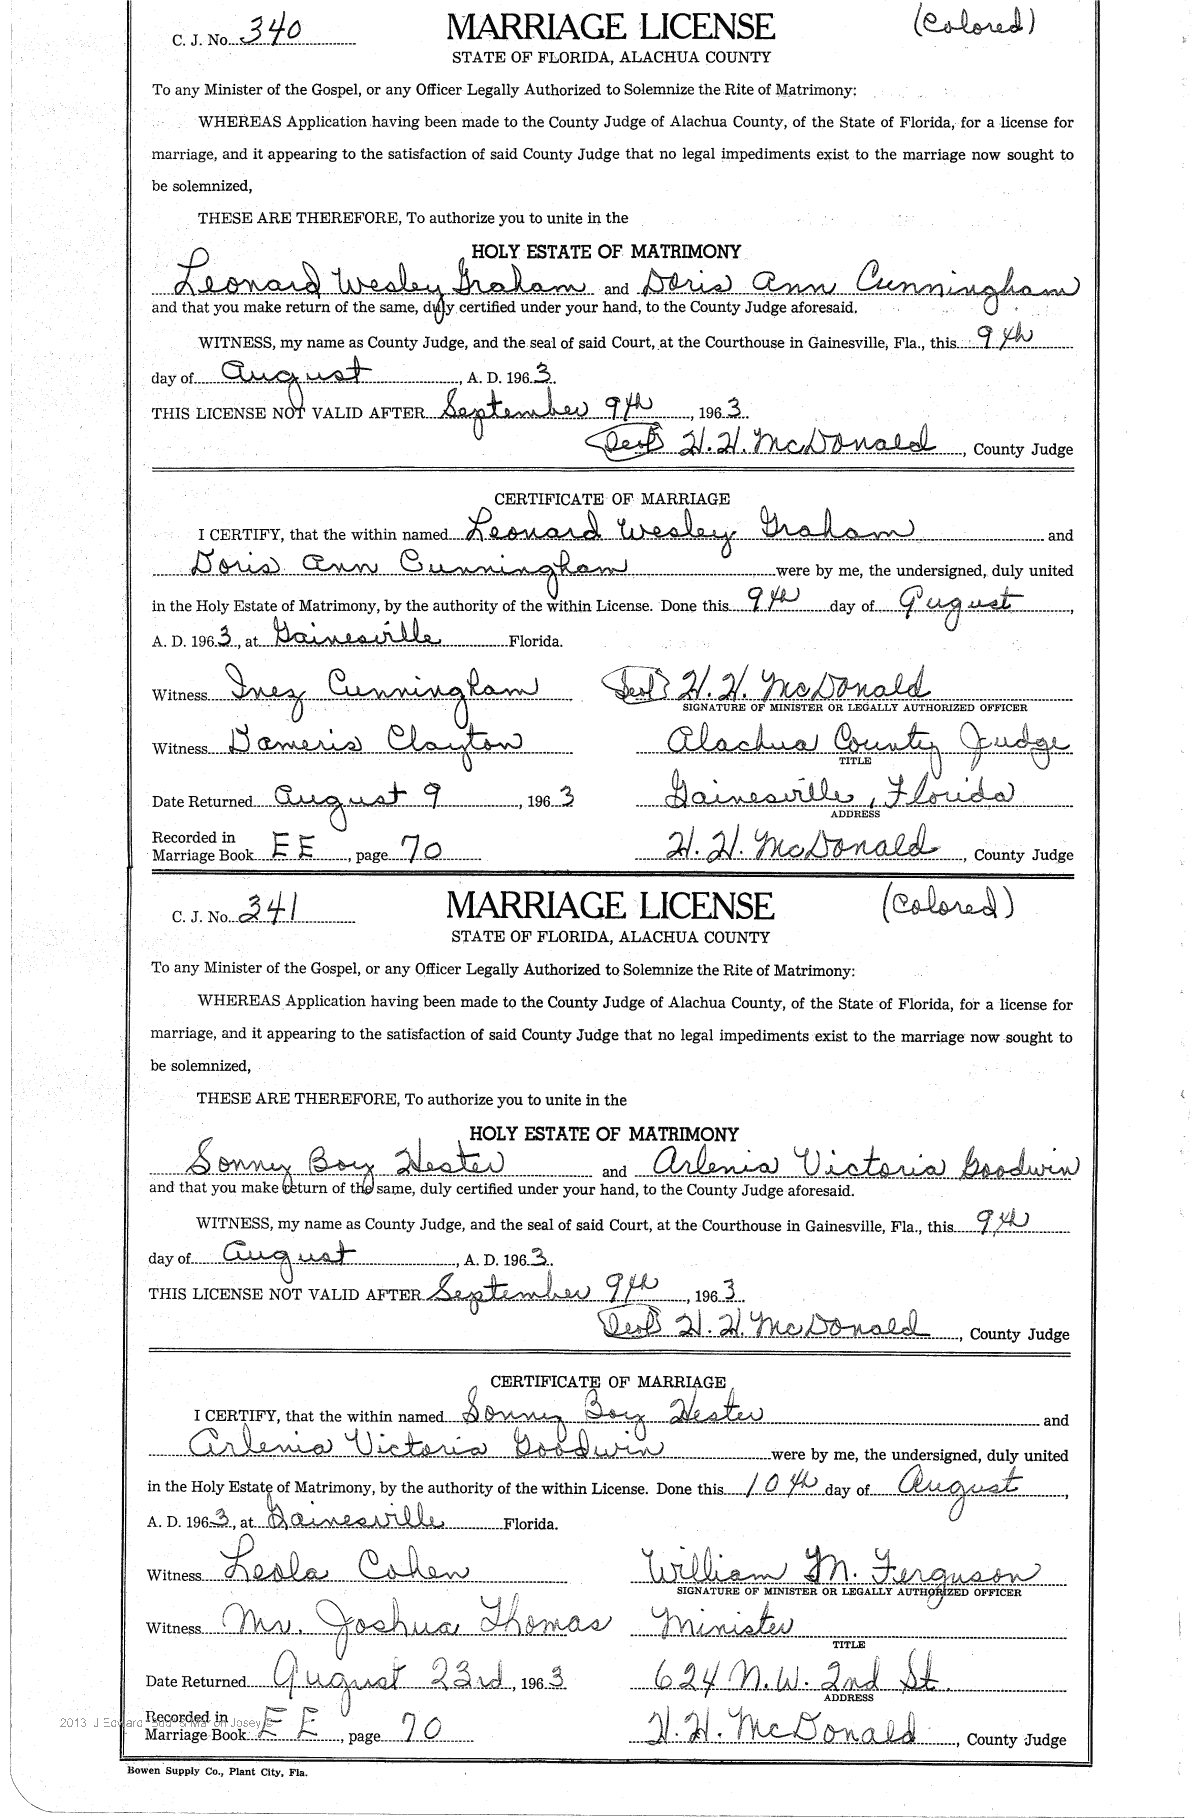 C. J. No. 340 MARRIAGE LICENSE (Colored)
STATE OF FLORIDA, ALACHUA COUNTY
To any Minister of the Gospel, or any Officer Legally Authorized to Solemnize the Rite of Matrimony:
WHEREAS Application having been made to the County Judge of Alachua County, of the State of Florida, for a license for
marriage, and it appearing to the satisfaction of said County Judge that no legal impediments exist to the marriage now sought to
be solemnized,
THESE ARE THEREFORE, To authorize you to unite in the
HOLY ESTATE OF MATRIMONY
Leonard Wesley Graham and Doris Ann Cunningham
and that you make return of the same, duly certified under your hand, to the County Judge aforesaid.
WITNESS, my name as County Judge, and the seal of said Court, at the Courthouse in Gainesville, Fla., this 9th
day of August, A. D. 1963.
THIS LICENSE NOT VALID AFTER September 9th, 1963.
(Seal) H. H. McDonald, County Judge
CERTIFICATE OF MARRIAGE
I CERTIFY, that the within named Leonard Wesley Graham and
Doris Ann Cunningham were by me, the undersigned, duly united
in the Holy Estate of Matrimony, by the authority of the within License. Done this 9th day of August,
A. D. 1963, at Gainesville Florida.
Witness Inez Cunningham (Seal) H. H. McDonald
SIGNATURE OF MINISTER OR LEGALLY AUTHORIZED OFFICER
Witness Dameris Clayton Alachua County Judge
TITLE
Date Returned August 9, 1963 Gainesville, Florida
ADDRESS
Recorded in
Marriage Book EE, page 70 H. H. McDonald, County Judge
C. J. No. 341 MARRIAGE LICENSE (Colored)
STATE OF FLORIDA, ALACHUA COUNTY
To any Minister of the Gospel, or any Officer Legally Authorized to Solemnize the Rite of Matrimony:
WHEREAS Application having been made to the County Judge of Alachua County, of the State of Florida, for a license for
marriage, and it appearing to the satisfaction of said County Judge that no legal impediments exist to the marriage now sought to
be solemnized,
THESE ARE THEREFORE, To authorize you to unite in the
HOLY ESTATE OF MATRIMONY
Sonny Boy Hester and Arlenia Victoria Goodwin
and that you make return of the same, duly certified under your hand, to the County Judge aforesaid.
WITNESS, my name as County Judge, and the seal of said Court, at the Courthouse in Gainesville, Fla., this 9th
day of August, A. D. 1963.
THIS LICENSE NOT VALID AFTER September 9th, 1963.
(Seal) H. H. McDonald, County Judge
CERTIFICATE OF MARRIAGE
I CERTIFY, that the within named Sonny Boy Hester and
Arlenia Victoria Goodwin were by me, the undersigned, duly united
in the Holy Estate of Matrimony, by the authority of the within License. Done this 10th day of August,
A. D. 1963, at Gainesville Florida.
Witness Leola Cohen William M. Ferguson
SIGNATURE OF MINISTER OR LEGALLY AUTHORIZED OFFICER
Witness Mr. Joshua Thomas Minister
TITLE
Date Returned August 23rd, 1963 624 N.W. 2nd St.
ADDRESS
Recorded in
Marriage Book EE, page 70 H. H. McDonald, County Judge
Bowen Supply Co., Plant City, Fla.
2013 J Edward Josey